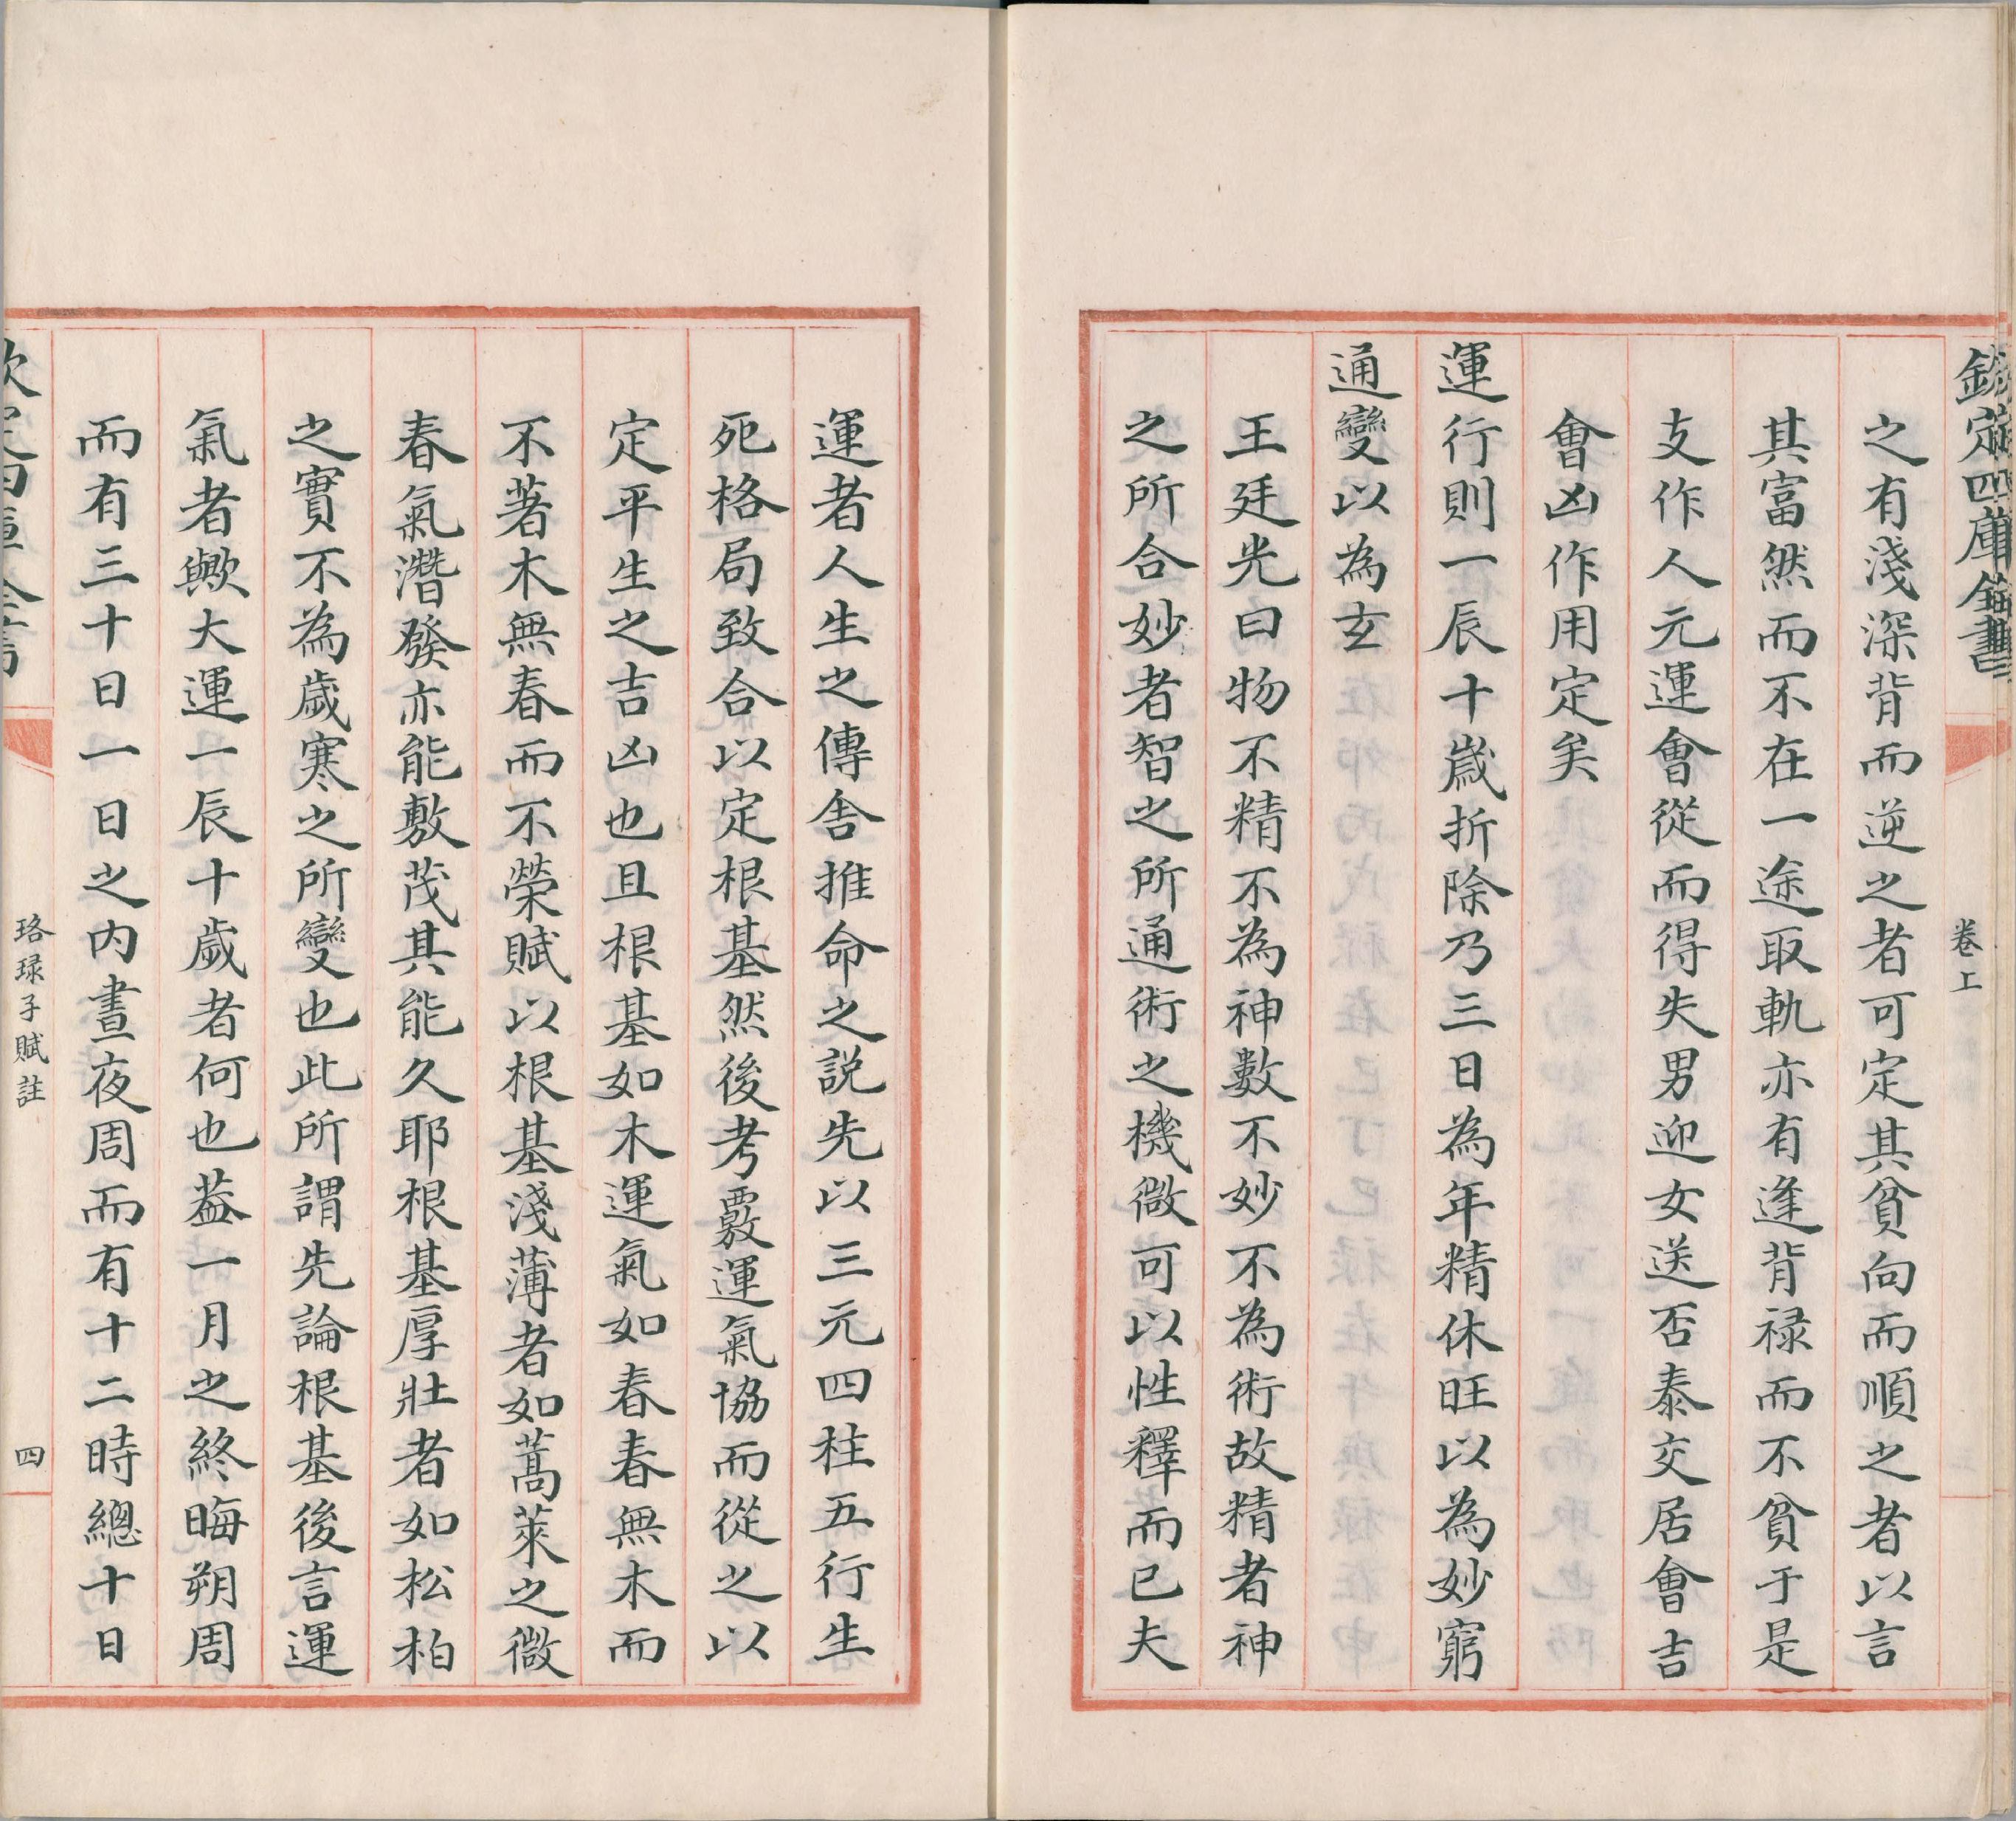 欽定四庫全書
卷上
之有淺深背而逆之者可定其貧向而順之者以言
其富然而不在一途取軌亦有逢背禄而不貧于是
支作人元運會從而得失男迎女送否泰交居會吉
會凶作用定矣
運行則一辰十歲折除乃三日為年精休旺以為妙窮
通變以為玄
王廷光曰物不精不為神數不妙不為術故精者神
之所合妙者智之所通術之機微可以性釋而已夫
運者人生之傳舍推命之說先以三元四柱五行生
死格局致合以定根基然後考覈運氣協而從之以
定平生之吉凶也且根基如木運氣如春春無木而
不著木無春而不榮賦以根基淺薄者如蒿萊之微
春氣潛發亦能敷茂其能久耶根基厚壯者如松柏
之實不為歲寒之所變也此所謂先論根基後言運
氣者歟大運一辰十歲者何也葢一月之終晦朔周
而有三十日一日之內晝夜周而有十二時總十日
欽定四庫全書
珞琭子賦註
四